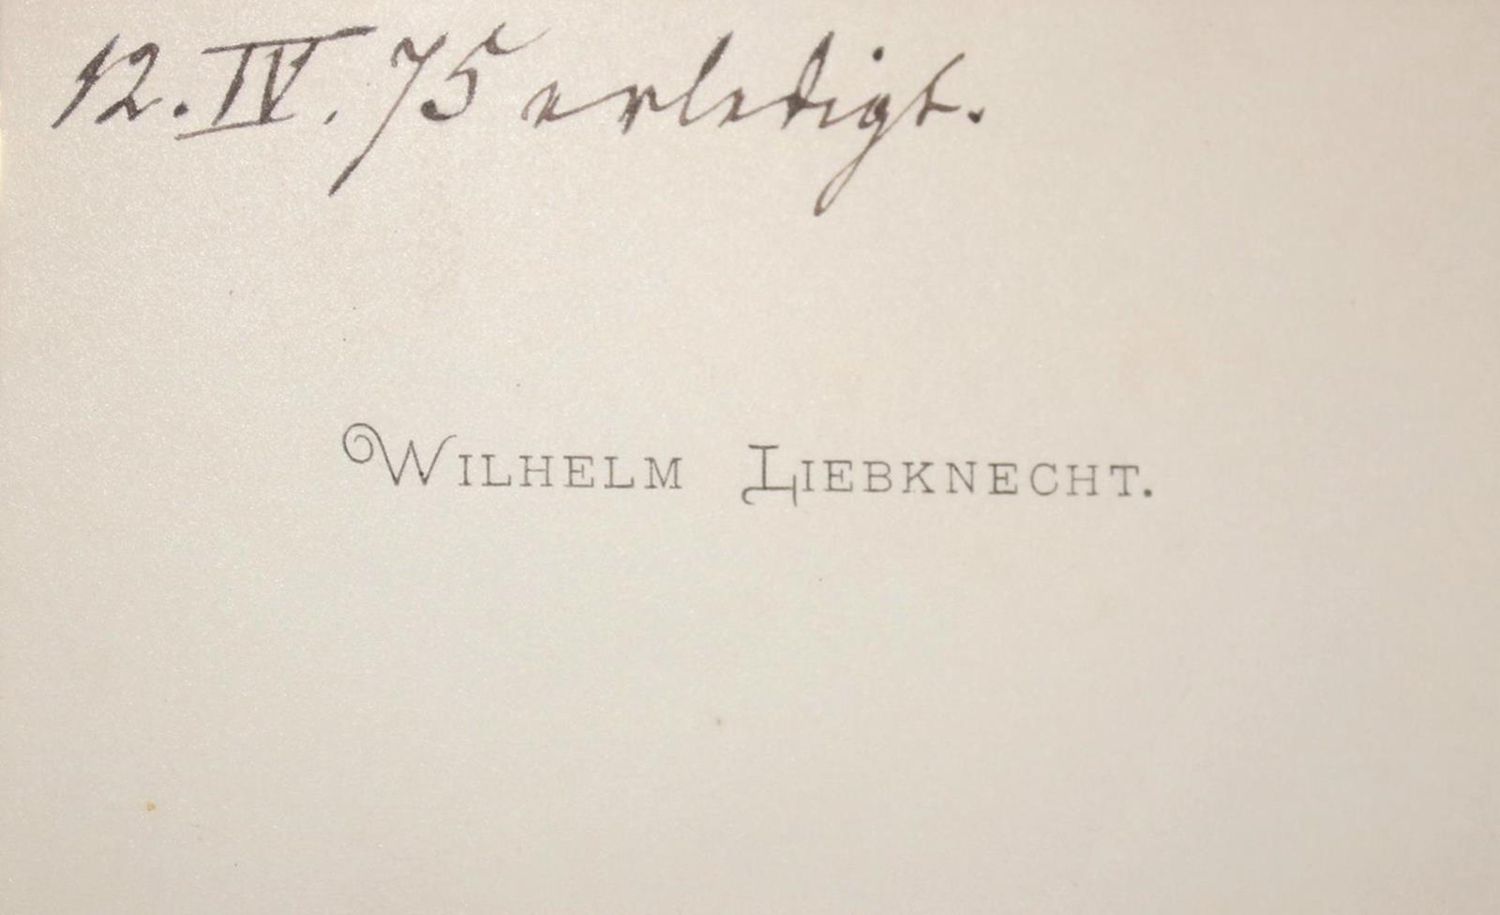 12. IV. 75 erledigt.
WILHELM LIEBKNECHT.